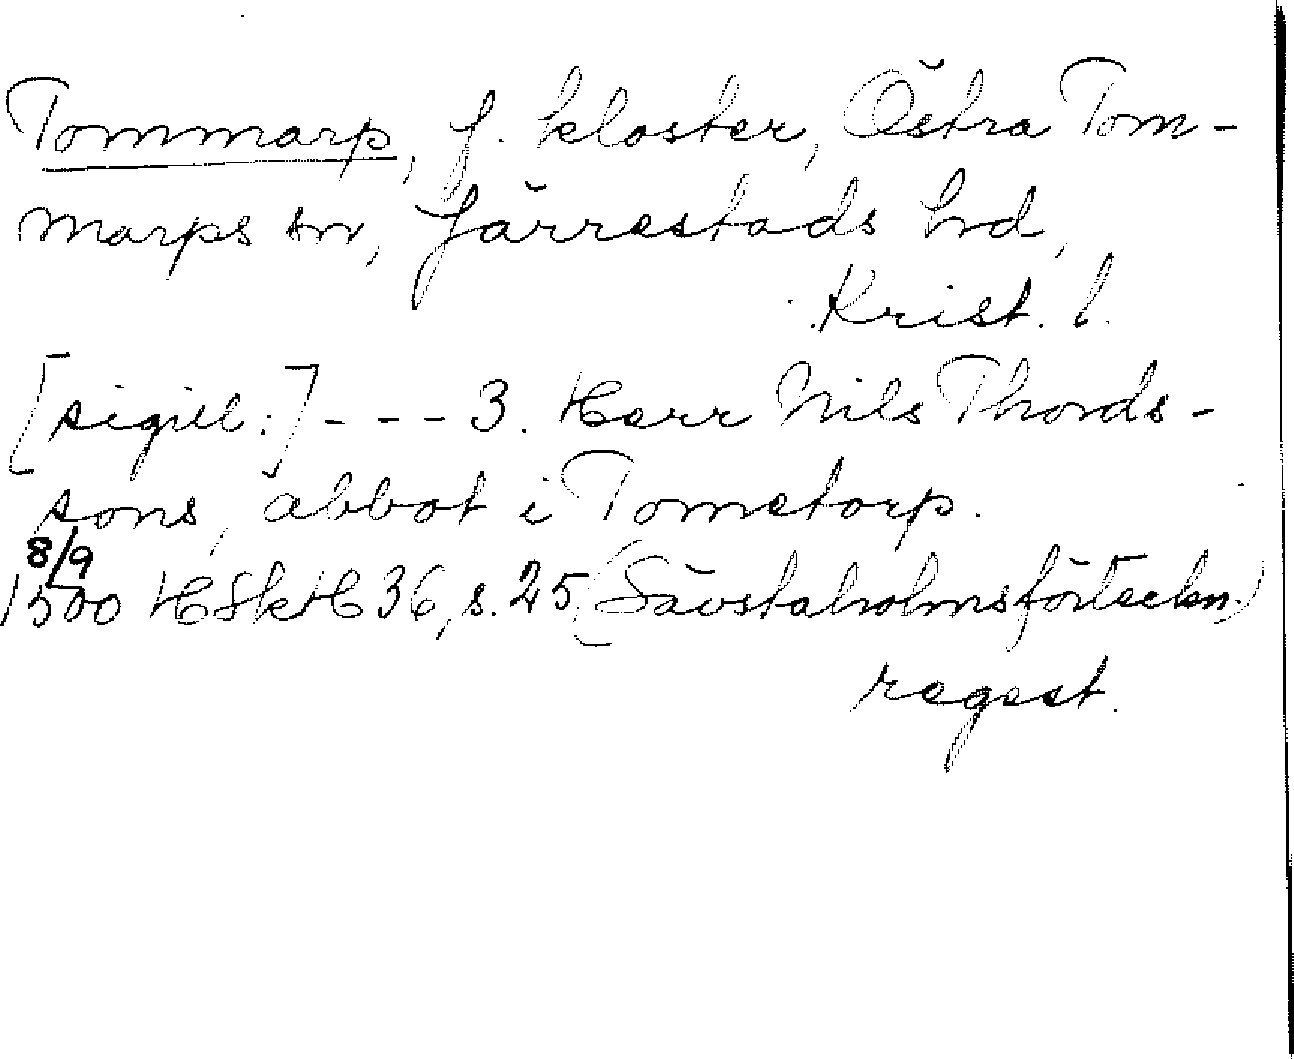 Tommarp, f. kloster, Östra Tom-
marps sn, Järrestads hd,
Krist. l.
[sigill:] - - - 3. Herr Nils Thords-
sons, abbot i Tometorp.
8/9
1500 HSkH 36, s. 25 (Sävstaholmsförteckn.)
regest.